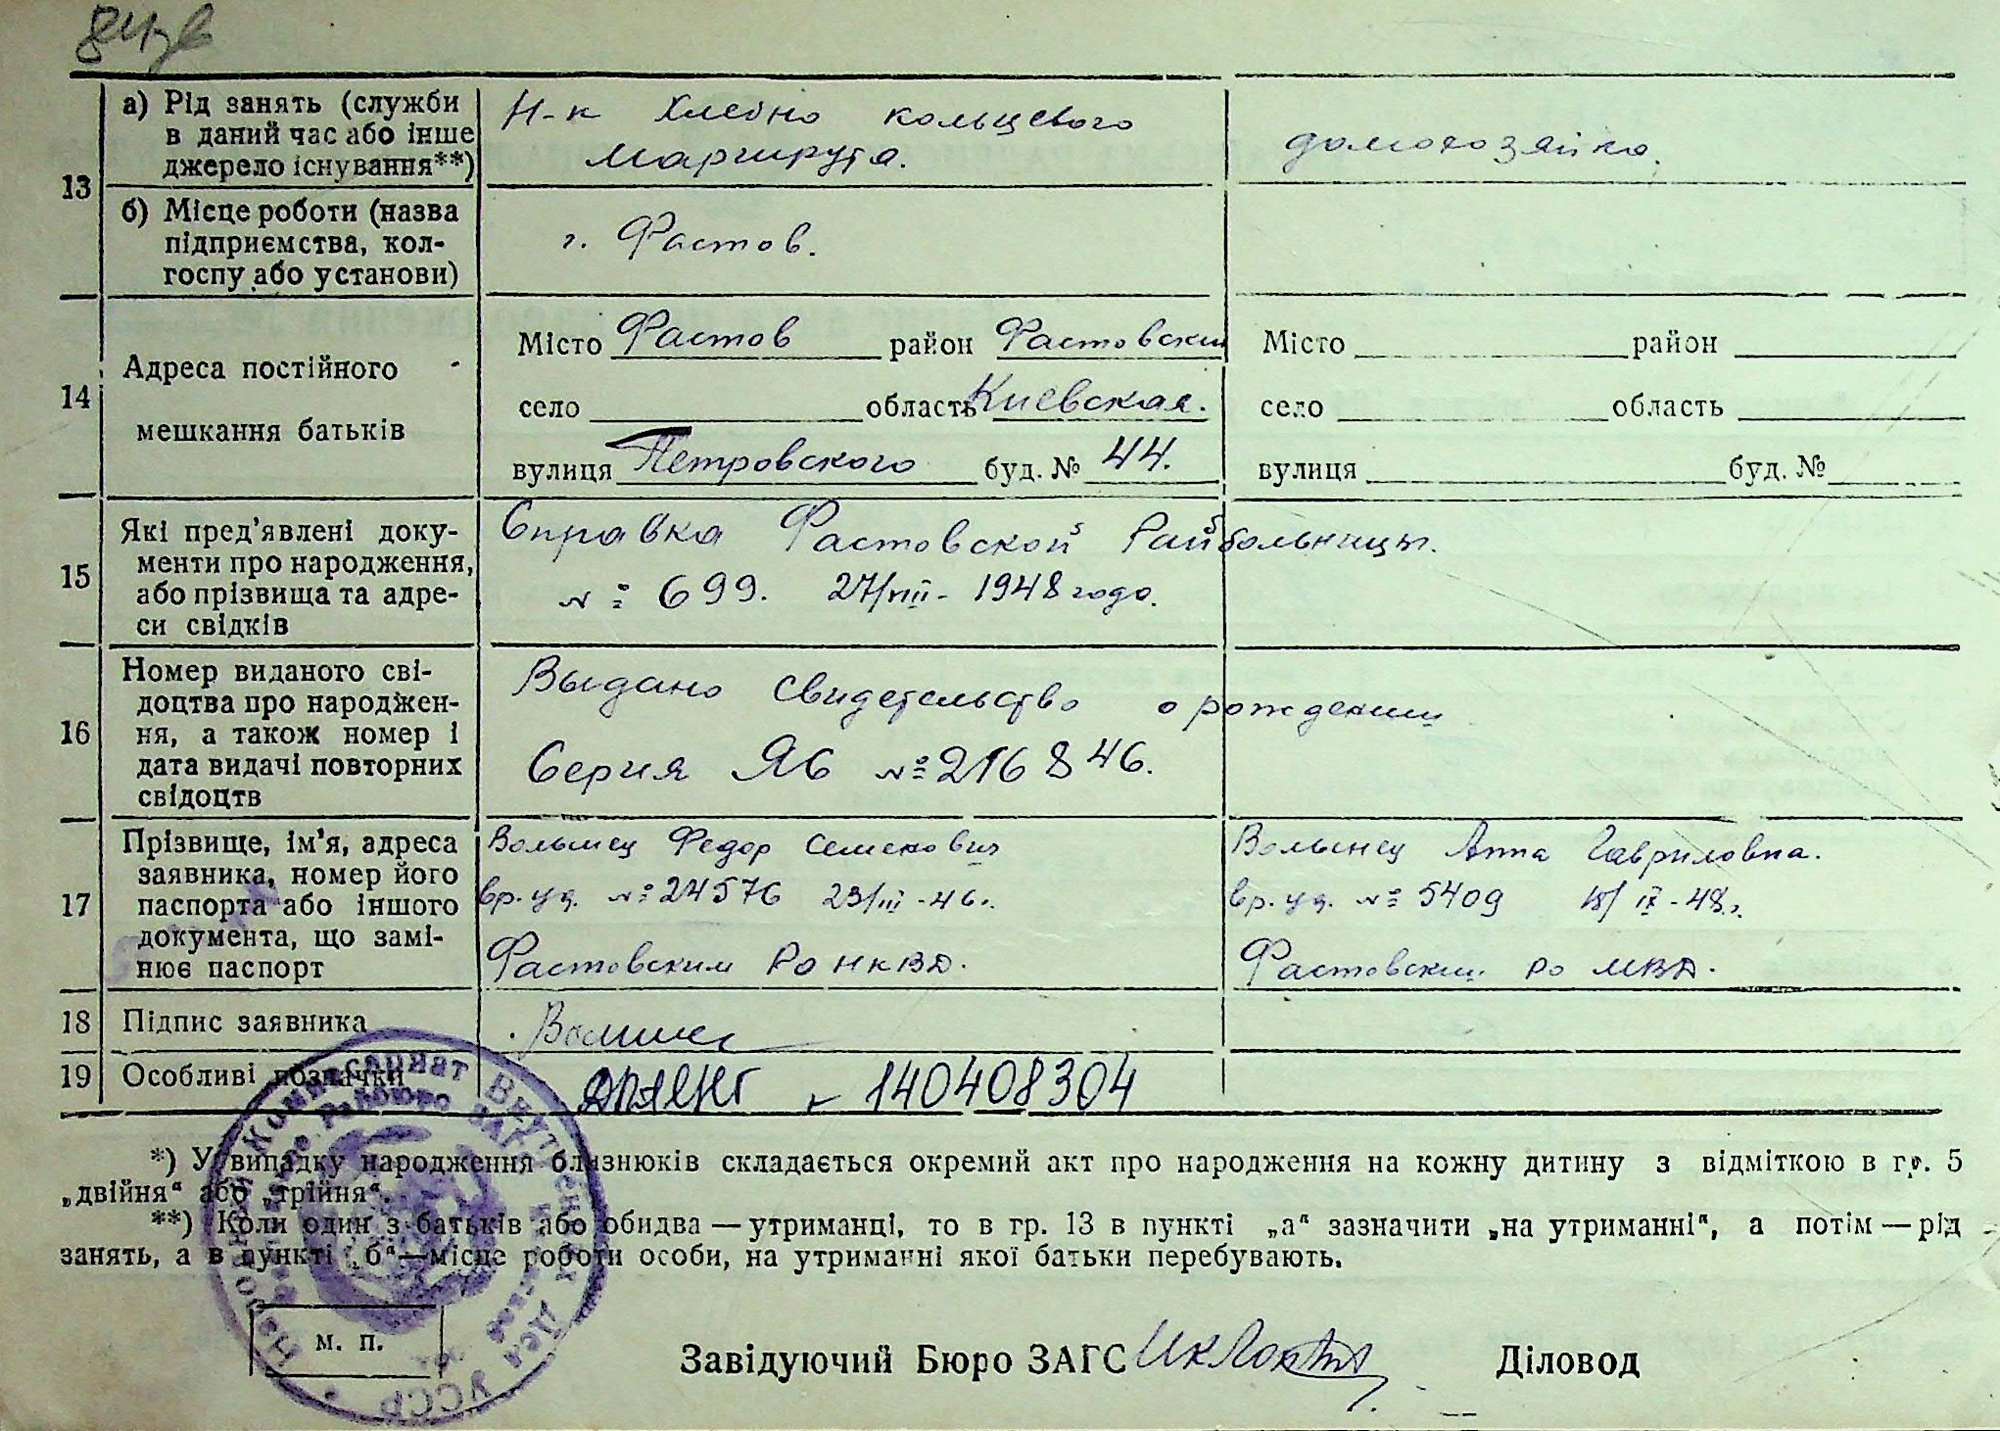 13
а) Рід занять (служби
в даний час або інше
джерело існування**)
Н-к Хлебно кольцевого
Маршрута.
домохозяйка.
б) Місце роботи (назва
підприємства, кол-
госпу або установи)
г. Фастов.
14
Адреса постійного
мешкання батьків
Місто Фастов район Фастовский
село область Киевская.
вулиця Петровского буд. № 44.
Місто район
село область
вулиця буд. №
15
Які пред'явлені доку-
менти про народження,
або прізвища та адре-
си свідків
Справка Фастовской Райбольницы.
№ 699. 27/VIII - 1948 года.
16
Номер виданого сві-
доцтва про народжен-
ня, а також номер і
дата видачі повторних
свідоцтв
Выдано свидетельство о рождении
Серия ЯБ № 216846.
17
Прізвище, ім'я, адреса
заявника, номер його
паспорта або іншого
документа, що замі-
нює паспорт
Волынец Федор Семенович
вр. уд. № 24576 23/III - 46 г.
Фастовским РО НКВД.
Волынец Анна Гавриловна.
вр. уд. № 5409 18/IX - 48 г.
Фастовским РО МВД.
18
Підпис заявника
19
Особливі позначки
140408304
*) У випадку народження близнюків складається окремий акт про народження на кожну дитину з відміткою в гр. 5
„двійня“ або „трійня“.
**) Коли один з батьків або обидва — утриманці, то в гр. 13 в пункті „а“ зазначити „на утриманні“, а потім — рід
занять, а в пункті „б“ — місце роботи особи, на утриманні якої батьки перебувають.
м. п.
Народный Комиссариат Внутренних Дел УССР
Завідуючий Бюро ЗАГС
Діловод